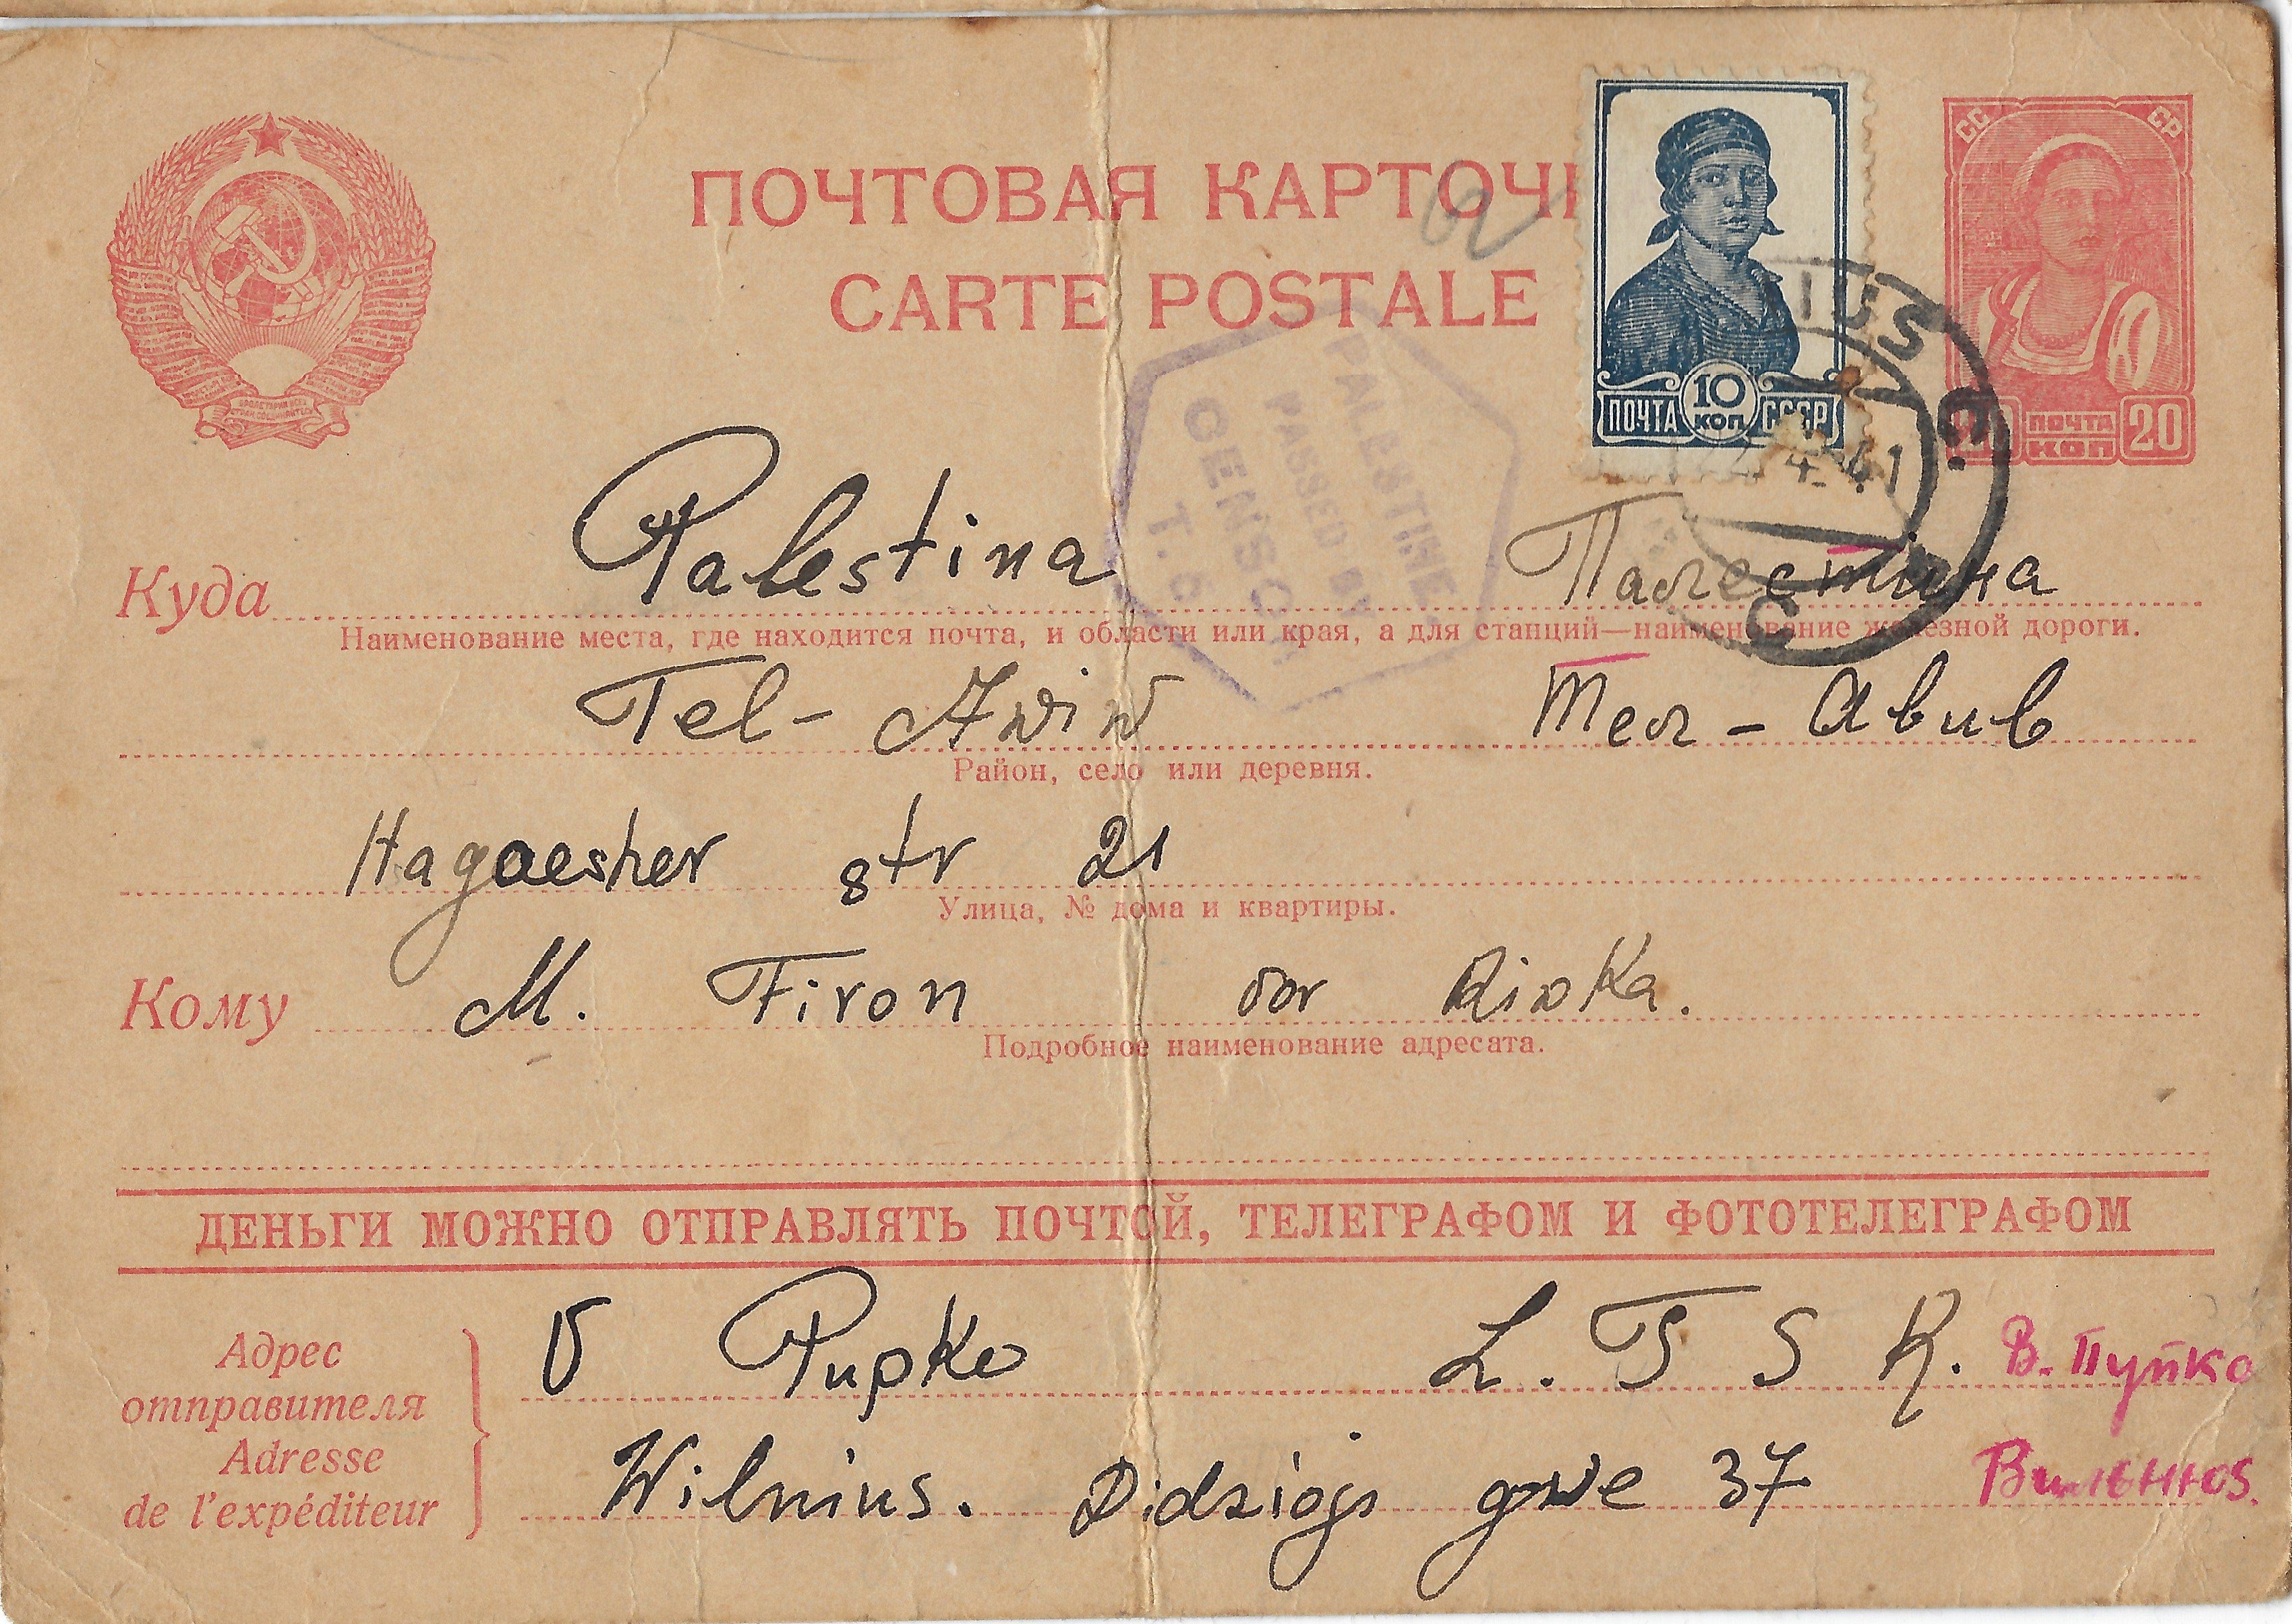 СС СР
ПОЧТОВАЯ КАРТОЧ
CARTE POSTALE
10
ПОЧТА КОП СССР
ПОЧТА
КОП 20
IUS C.
4 41
C
PALESTINE
PASSED BY
CENSOR
T.
Куда Palestina Палестина
Наименование места, где находится почта, и области или края, а для станций—наименование железной дороги.
Tel-Awiw Тел-Авив
Район, село или деревня.
Hagaesher str 21
Улица, № дома и квартиры.
Кому M. Firon Riwka.
Подробное наименование адресата.
ДЕНЬГИ МОЖНО ОТПРАВЛЯТЬ ПОЧТОЙ, ТЕЛЕГРАФОМ И ФОТОТЕЛЕГРАФОМ
Адрес
отправителя
Adresse
de l'expéditeur
Pupko L. T S R. В. Пупко
Wilnius. Didziojs gowe 37 Вильнюs.